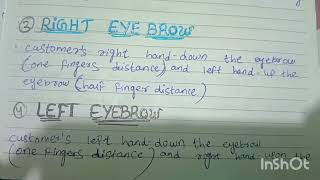 ③ RIGHT EYE BROW
customer's right hand-down the eyebrow
(one fingers distance) and left hand-up the
eyebrow (half finger distance)
④ LEFT EYEBROW
customer's left hand down the eyebrow
(one fingers distance) and right hand upon the
InShOt